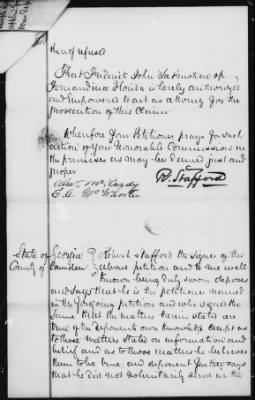 thereof refused
That Frederick John
Fernandina Florida is hereby authorized
and empowered to act as attorney for the
prosecution of this Claim
Wherefore Your Petitioner prays for such
action of Your Honorable Commissioners in
the premises as may be deemed just and
proper
R. Stafford
State of Georgia } Robert Stafford the signer of the
County of Camden } above petition and to me well
known being duly sworn deposes
and says that he is the petitioner named
in the foregoing petition and who signed the
same that the matters therein stated are
true of the deponents own knowledge except as
to those matters stated on information and
belief and as to those matters he believes
them to be true, and deponent further says
that he did not voluntarily serve in the